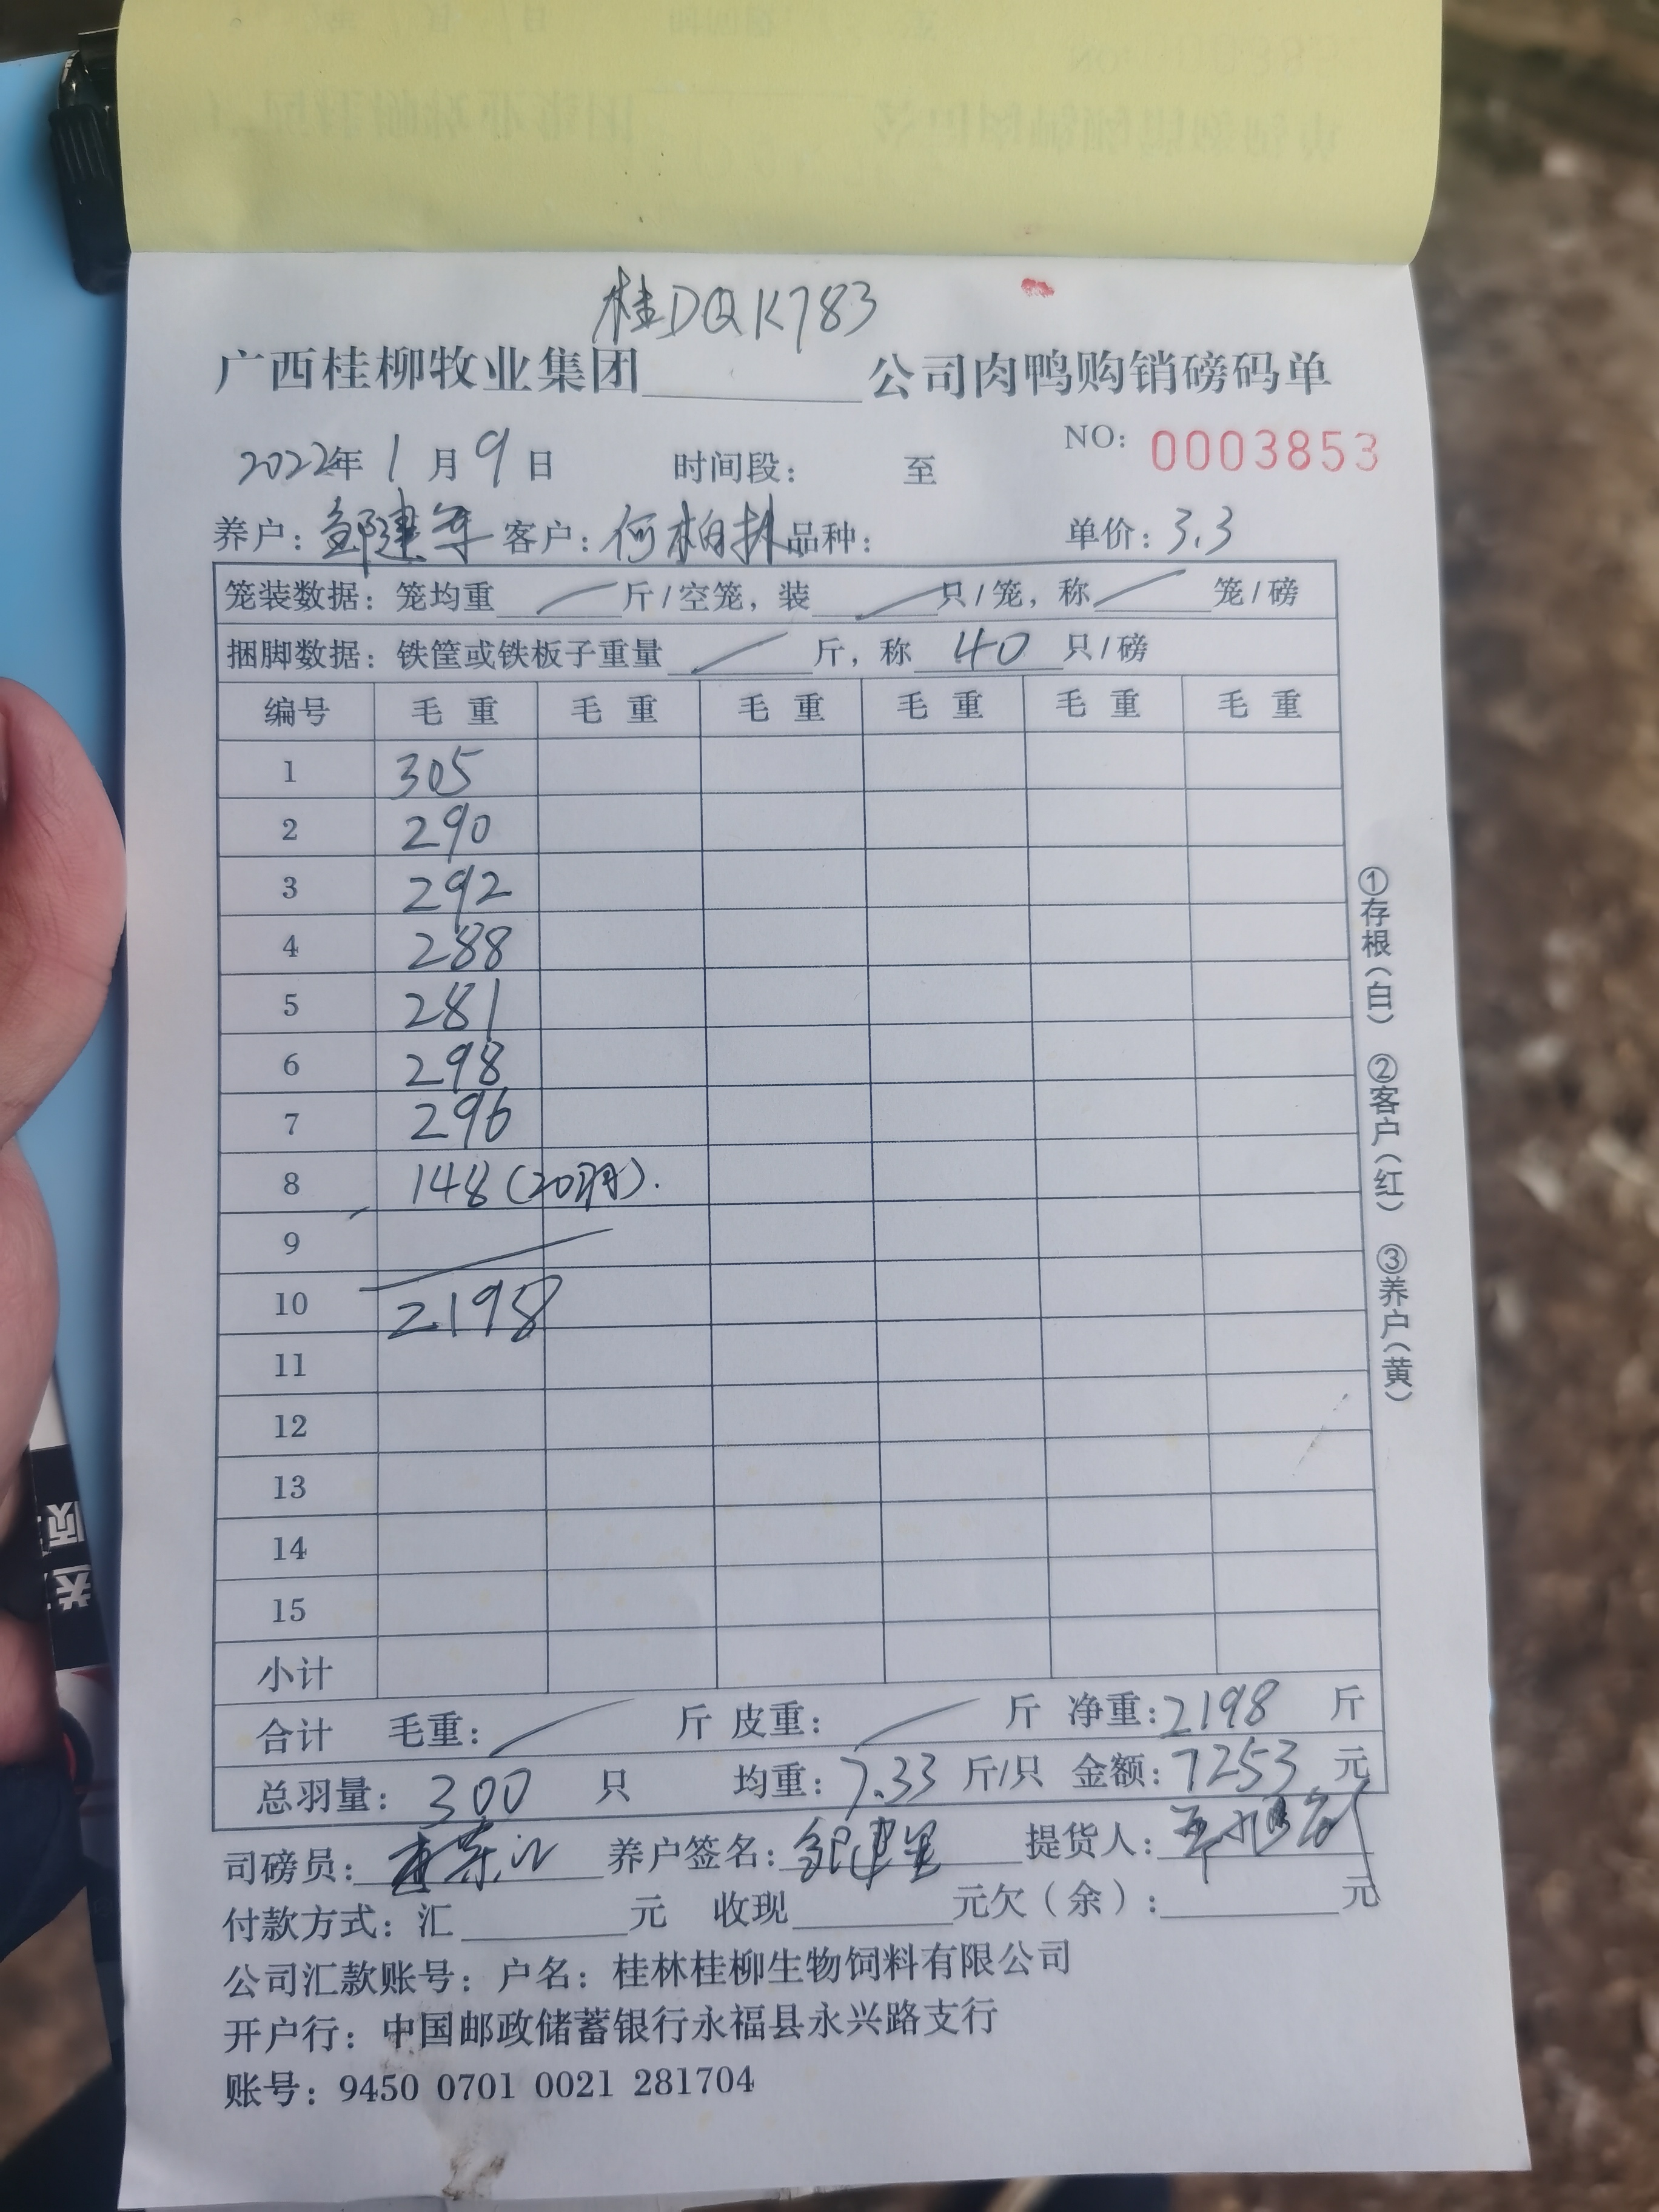 桂DQK783
广西桂柳牧业集团________公司肉鸭购销磅码单
NO: 0003853
2022年 1 月 9 日 时间段: 至
养户: 邹建军 客户: 何柏林 品种: 单价: 3.3
笼装数据: 笼均重 / 斤/空笼, 装 / 只/笼, 称 / 笼/磅
捆脚数据: 铁筐或铁板子重量 / 斤, 称 40 只/磅
编号 毛重 毛重 毛重 毛重 毛重 毛重
1 305
2 290
3 292
4 288
5 281
6 298
7 296
8 148 (20羽).
9
10 2198
11
12
13
14
15
小计
合计 毛重: / 斤 皮重: / 斤 净重: 2198 斤
总羽量: 300 只 均重: 7.33 斤/只 金额: 7253 元
司磅员: 养户签名: 邹建军 提货人:
付款方式: 汇________元 收现________元欠(余):________元
公司汇款账号: 户名: 桂林桂柳生物饲料有限公司
开户行: 中国邮政储蓄银行永福县永兴路支行
账号: 9450 0701 0021 281704
①存根(白) ②客户(红) ③养户(黄)